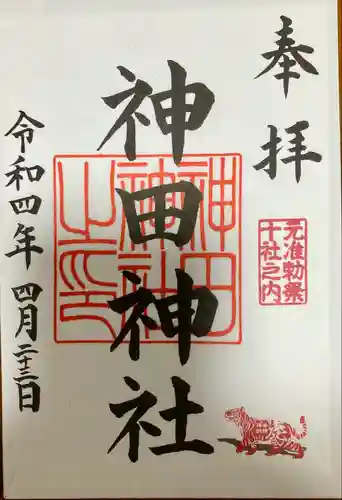 奉拝
元准勅祭
十社之内
神田神社
神田
神社
之印
令和四年四月二十三日